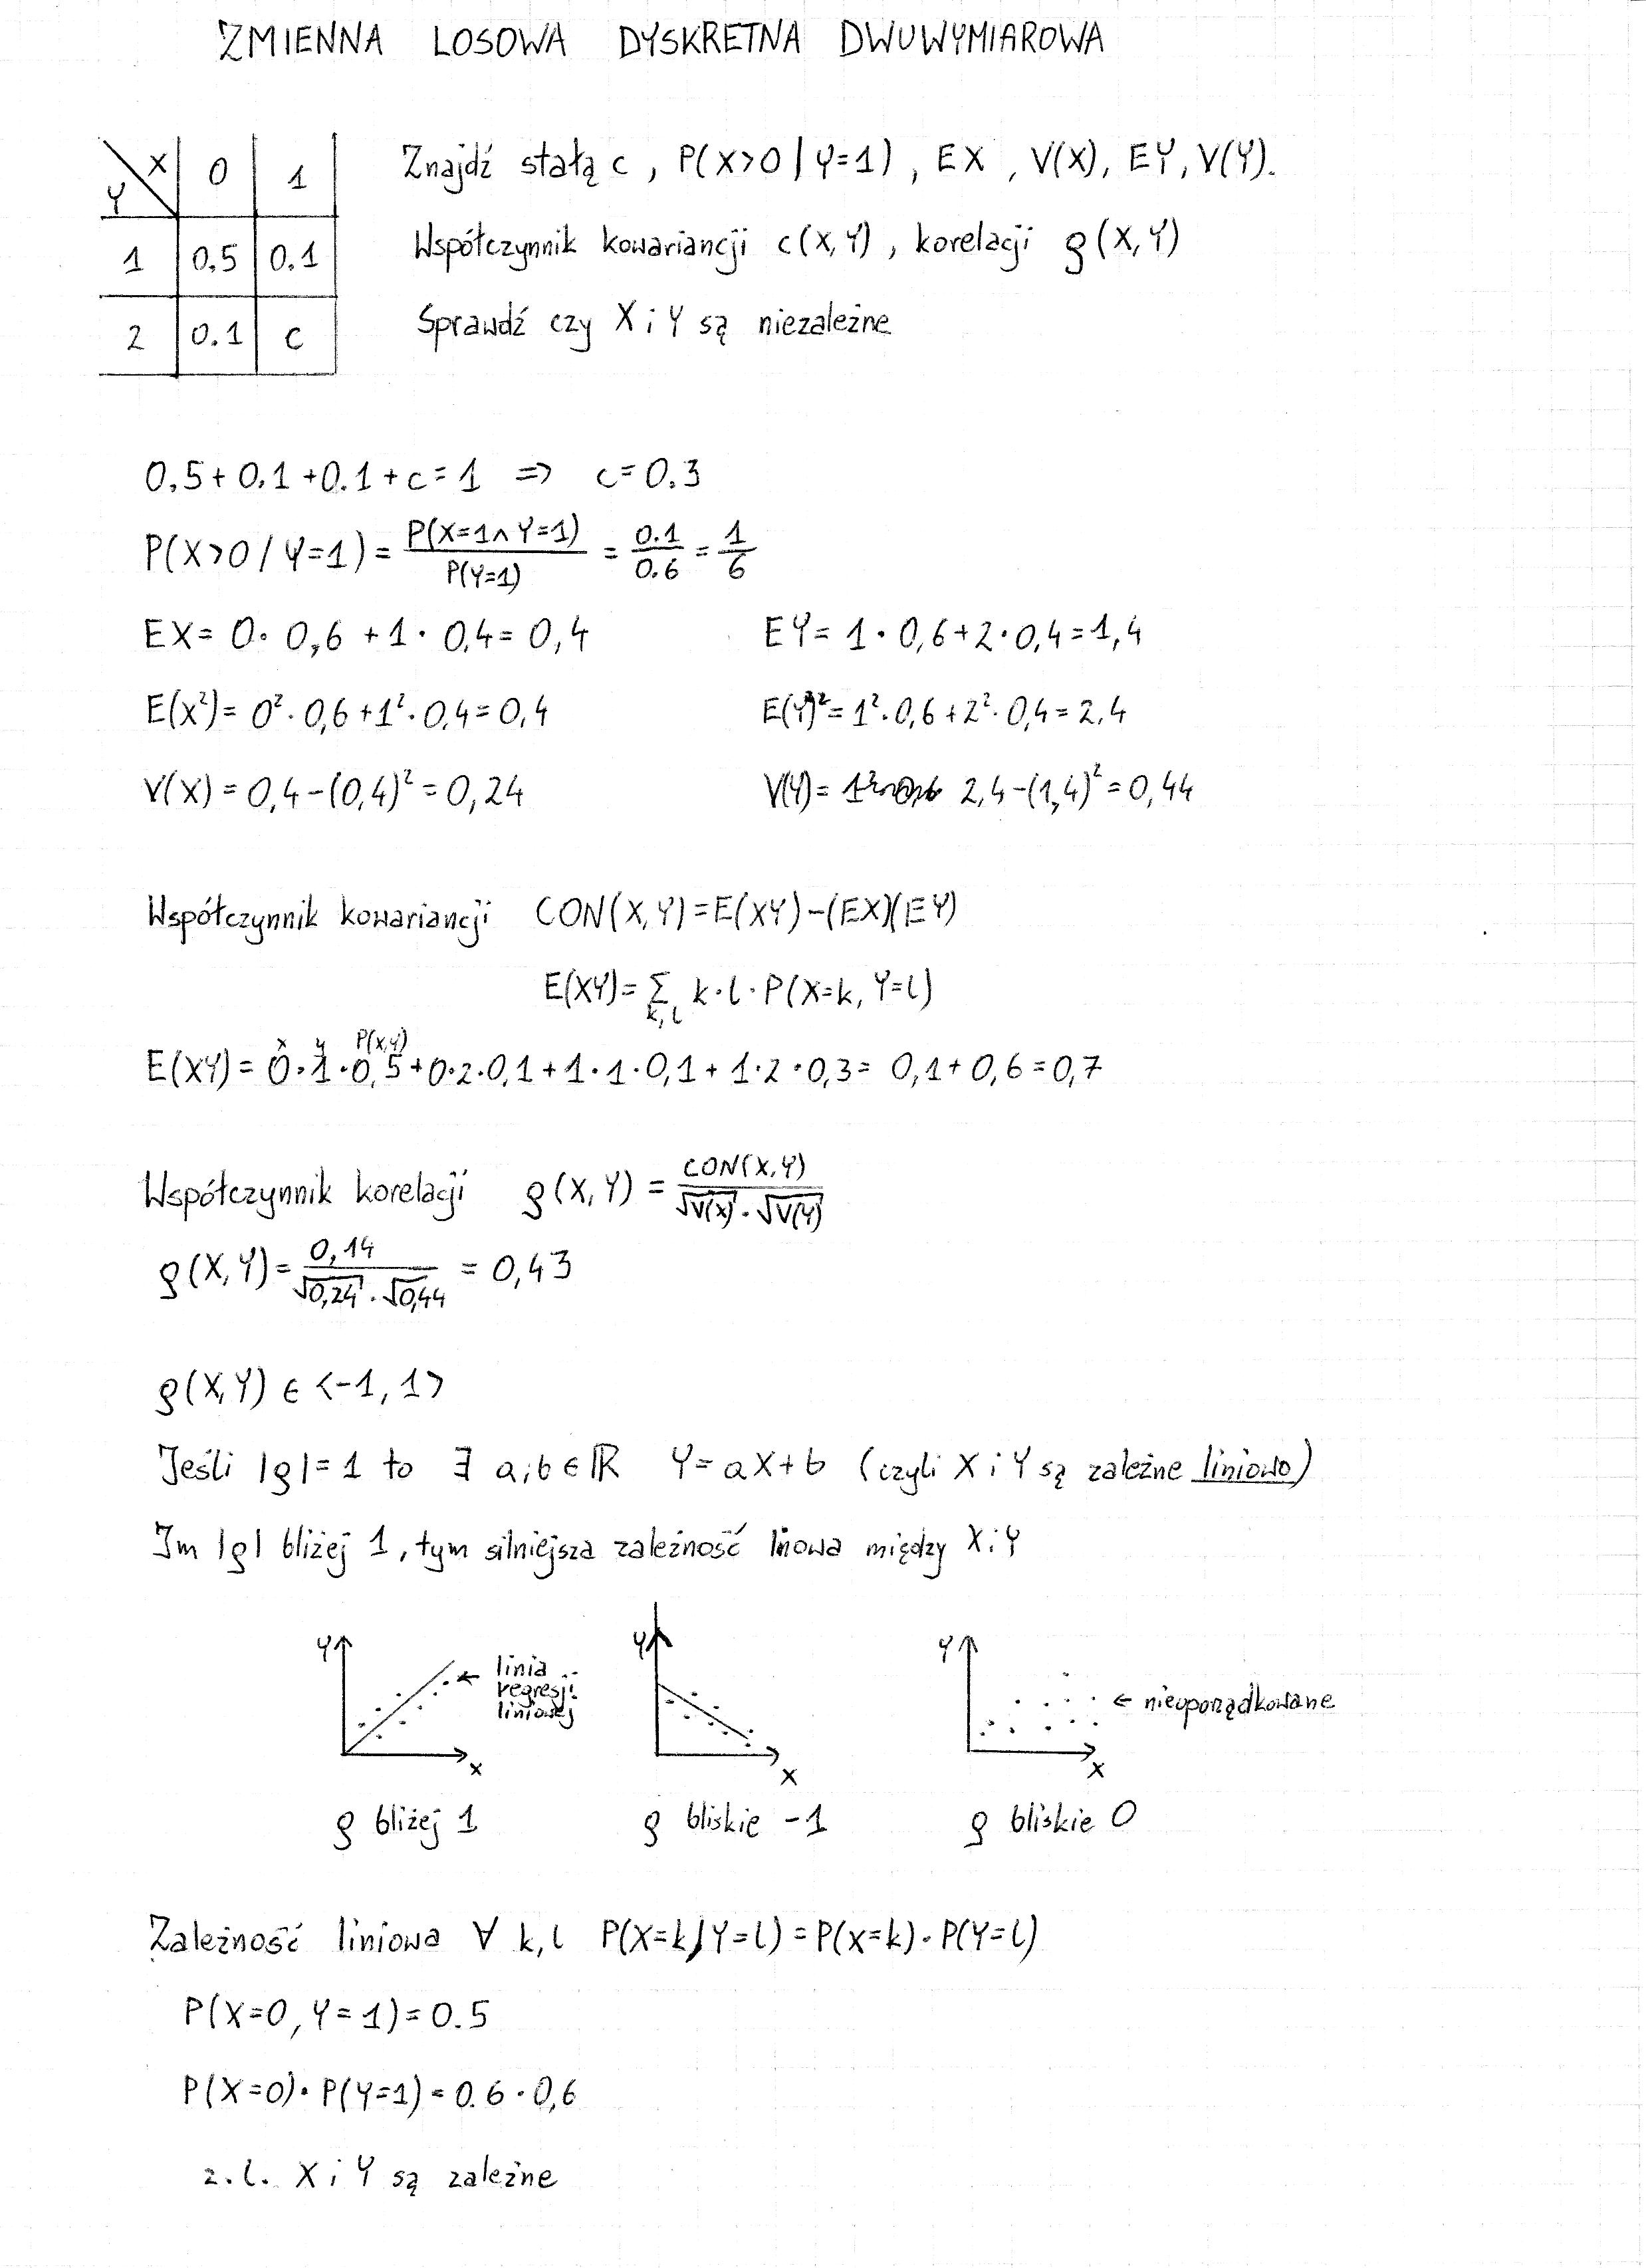 ZMIENNA LOSOWA DYSKRETNA DWUWYMIAROWA
X 0 1
Y
1 0.5 0.1
2 0.1 c
Znajdź stałą c, P(X>0 / Y=1), EX, V(X), EY, V(Y).
Współczynnik kowariancji c(X,Y), korelacji ρ(X,Y)
Sprawdź czy X i Y są niezależne
0,5+0,1+0.1+c=1 => c=0.3
P(X>0 / Y=1) = P(X=1 ∧ Y=1) / P(Y=1) = 0.1/0.6 = 1/6
EX= 0· 0,6 +1· 0,4= 0,4
EY= 1·0,6+2·0,4=1,4
E(X²)= 0²·0,6+1²·0,4=0,4
E(Y)²= 1²·0,6+2²·0,4=2,4
V(X)=0,4-(0,4)²=0,24
V(Y)= 2,4-(1,4)²=0,44
Współczynnik kowariancji CON(X,Y)=E(XY)-(EX)(EY)
E(XY)= Σ k·l·P(X=k, Y=l)
k,l
x y P(x,y)
E(XY)= 0·1·0,5+0·2·0,1+1·1·0,1+1·2·0,3= 0,1+0,6=0,7
Współczynnik korelacji ρ(X,Y) = CON(X,Y) / √V(X) · √V(Y)
ρ(X,Y)= 0,14 / √0,24 · √0,44 = 0,43
ρ(X,Y) ∈ <-1,1>
Jeśli |ρ|=1 to ∃ a,b∈ℝ Y=aX+b (czyli X i Y są zależne liniowo)
Im |ρ| bliżej 1, tym silniejsza zależność liowa między X i Y
Y
x
← linia
regresji
liniowej
Y
x
Y
x
← nieuporządkowane
ρ bliżej 1
ρ bliskie -1
ρ bliskie 0
Zależność liniowa ∀ k,l P(X=k, Y=l)=P(X=k)·P(Y=l)
P(X=0, Y=1)=0.5
P(X=0)·P(Y=1)=0.6·0,6
z.l. X i Y są zależne